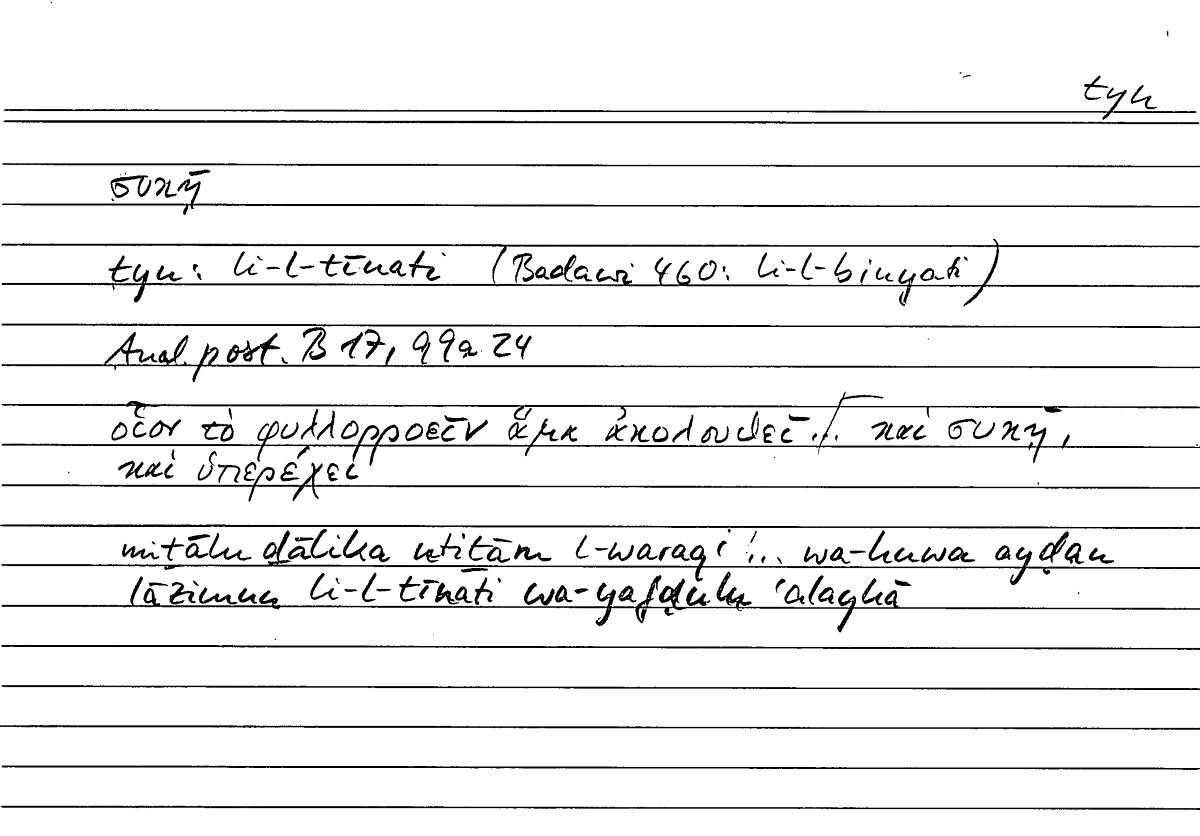 tyn
συκῆ
tyn: li-l-tīnati (Badawi 460: li-l-binyati)
Anal. post. B 17, 99a 24
οἷον τὸ φυλλορροεῖν ἅμα ἀκολουθεῖ ... καὶ συκῇ,
καὶ ὑπερέχει
miṯālu ḏālika ntiṯāru l-waraqi ... wa-huwa ayḍan
lāzimun li-l-tīnati wa-yafḍulu ʿalayhā